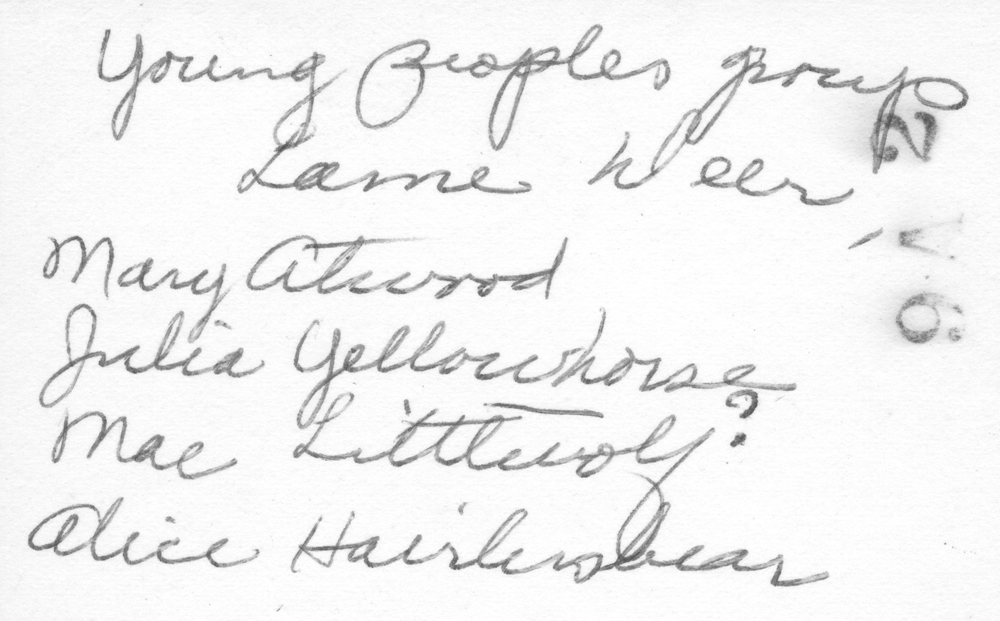 Young Peoples group
Lame Deer
Mary Atwood
Julia Yellowhorse
Mae Littlewolf?
Alice Hairlessbear
2 V 6